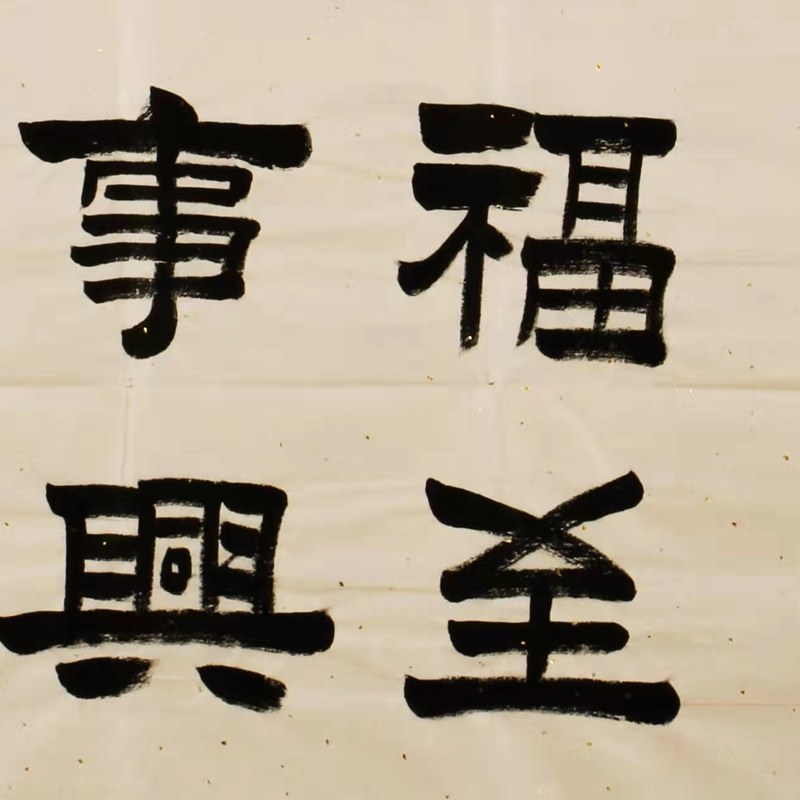 福至
事興